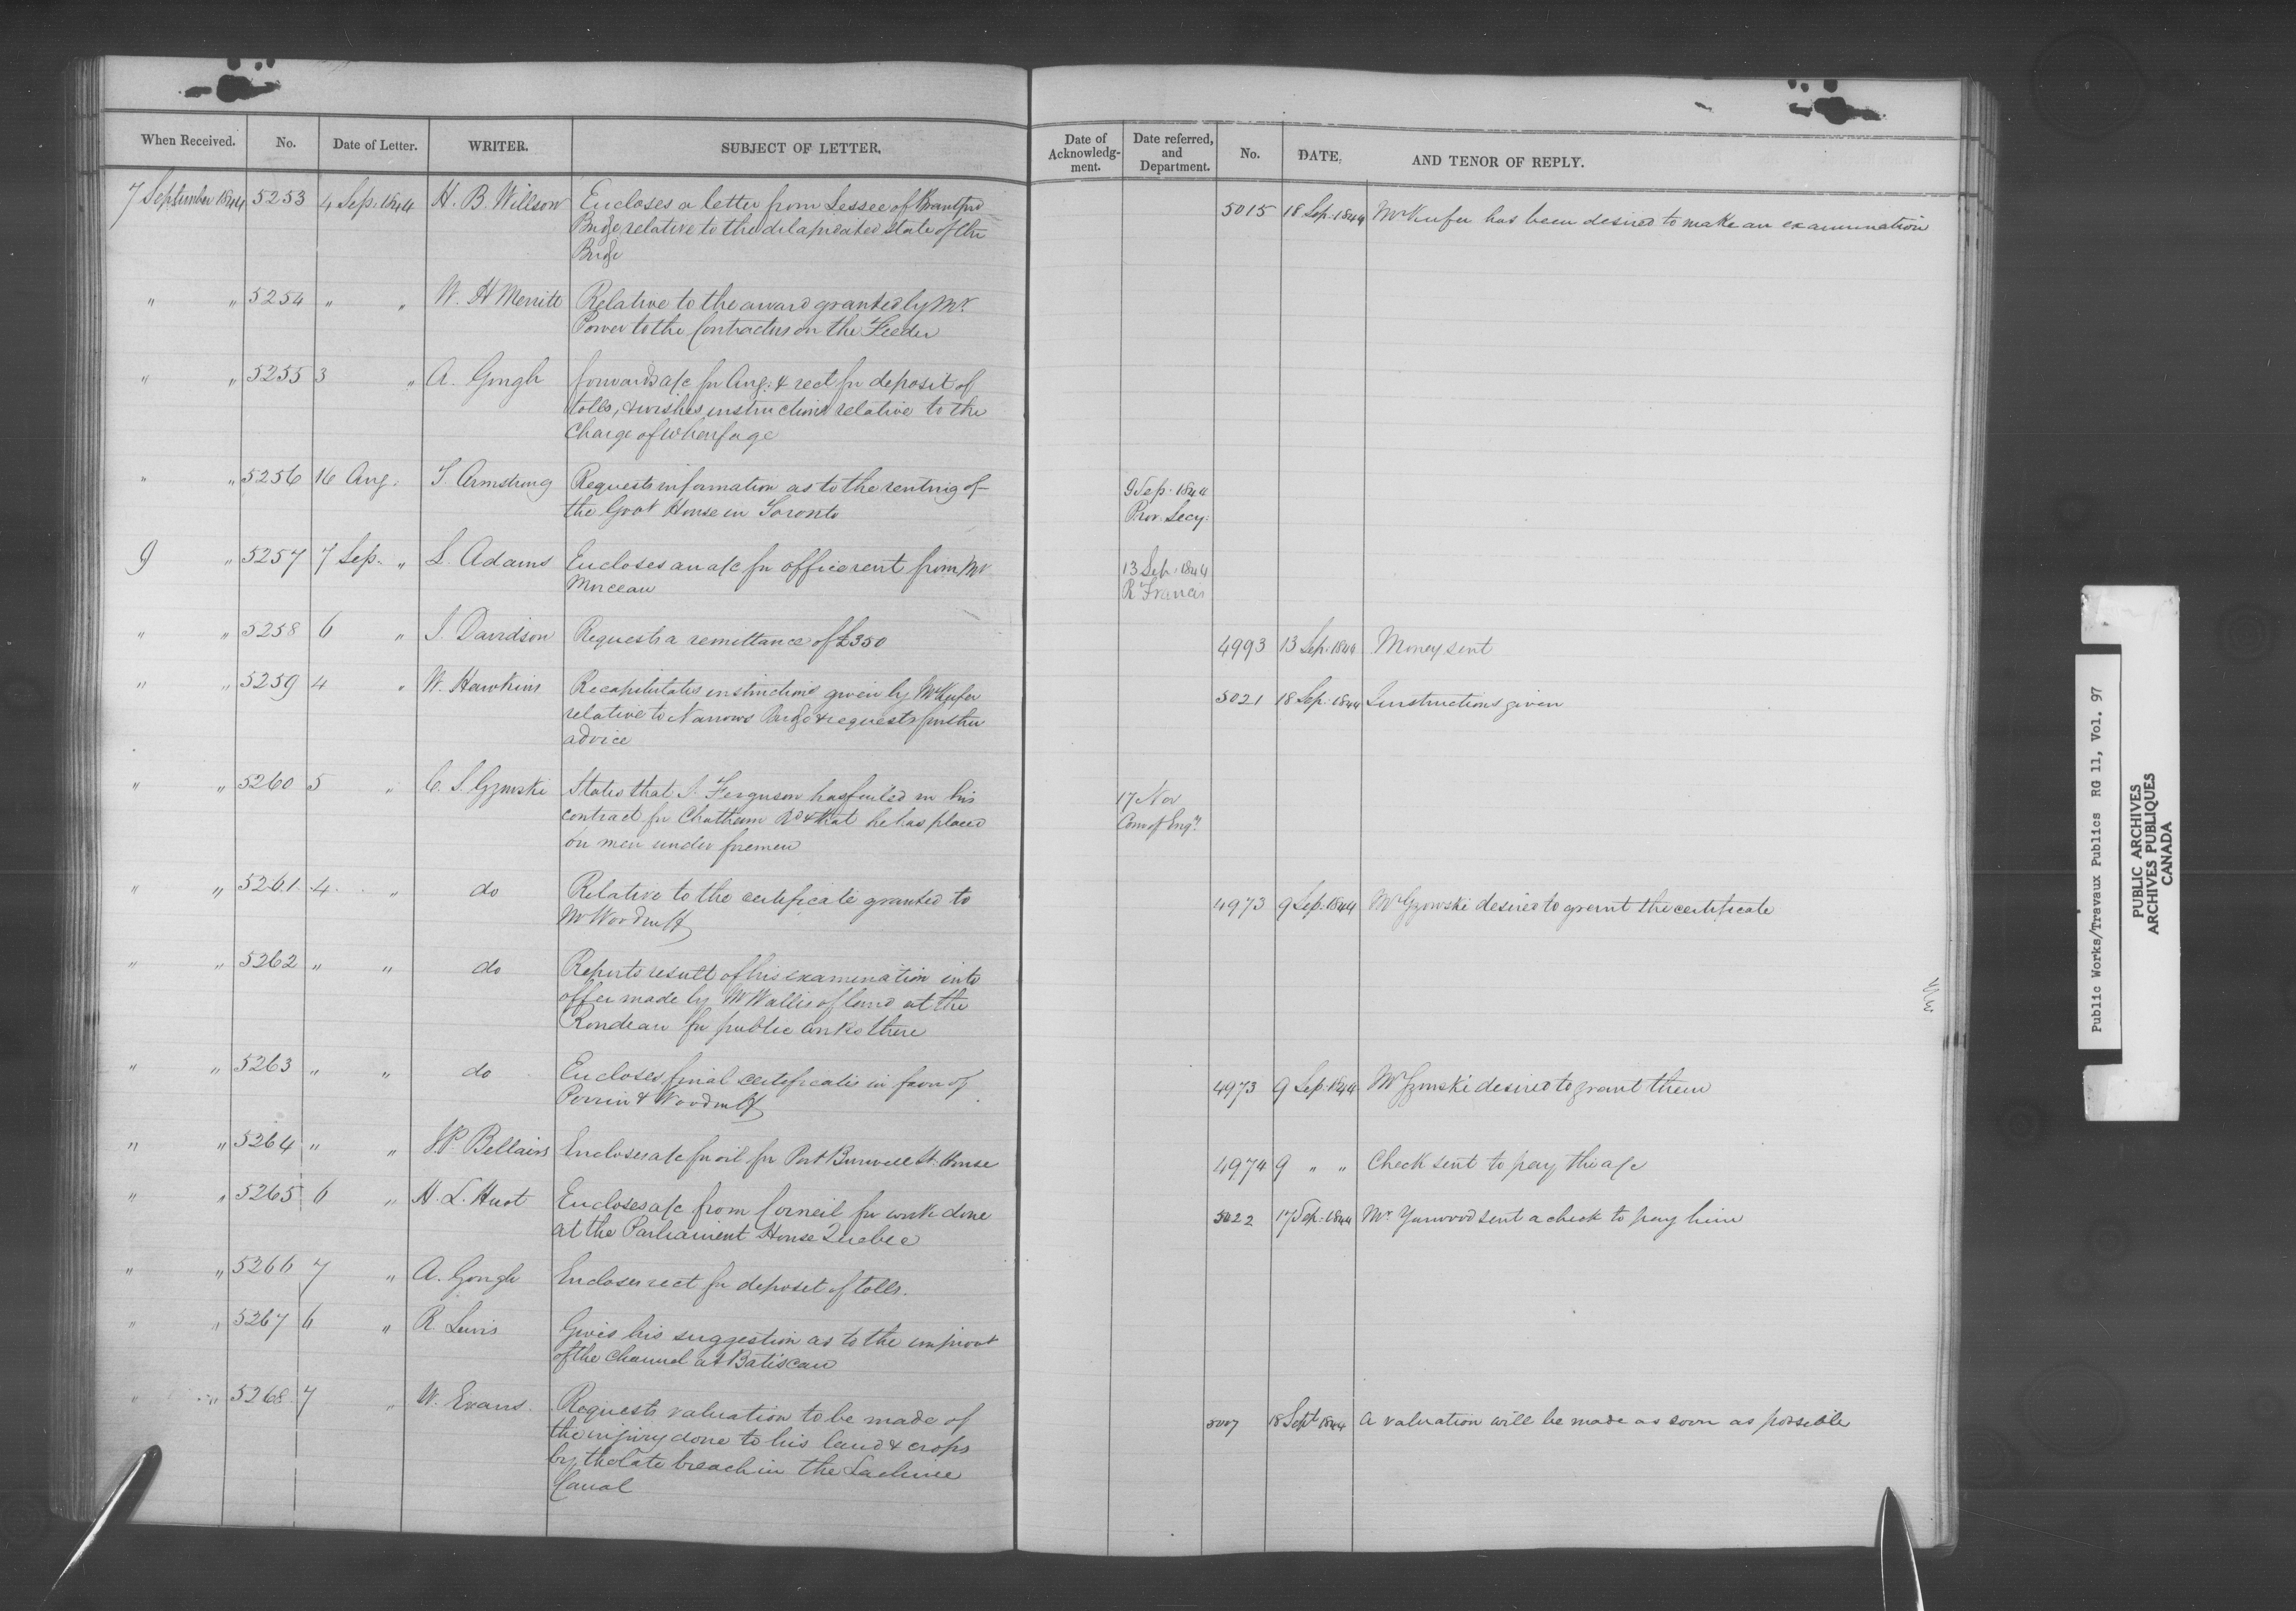 When Received. No. Date of Letter. WRITER. SUBJECT OF LETTER.
7 September 1844 5253 4 Sep. 1844 H. B. Willson Encloses a letter from Lessee of Brantford
Bridge relative to the dilapidated state of the
Bridge
" " 5254 " " W. H Merritt Relative to the award granted by Mr.
Power to the Contractors on the Feeder
" " 5255 3 " A. Gough forwards a/c for Aug. & rect for deposit of
tolls, & wishes instructions relative to the
Charge of wharfage
" " 5256 16 Aug. Armstrong Requests information as to the renting of
the Govt House in Toronto
9 " 5257 7 Sep. " L. Adams Encloses an a/c for office rent from Mr
" " 5258 6 " Davidson Requests a remittance of £350
" " 5259 4 " W. Hawkins Recapitulates instructions given by Mr Keefer
relative to Narrows Bridge & requests further
advice
" " 5260 5 " C. S. Gzowski States that Ferguson has failed in his
contract for Chatham Rd & that he has placed
on men under foremen
" " 5261 4 " do Relative to the certificate granted to
Mr Woodruff
" " 5262 " " do Reports result of his examination into
offer made by Mr Wallis of land at the
Rondeau for public works there
" " 5263 " " do Encloses final certificate in favor of
Perrin & Woodruff
" " 5264 " " Bellairs Encloses a/c for oil for Port Burwell Lt. House
" " 5265 6 " H. L. Huot Encloses a/c from Corneil for work done
at the Parliament House Quebec
" " 5266 7 " A. Gough Encloses rect for deposit of tolls.
" " 5267 6 " R. Lewis Gives his suggestion as to the improvt
of the Channel at Batiscan
" " 5268 7 " W. Evans. Requests valuation to be made of
the injury done to his land & crops
by the late breach in the Lachine
Canal
Date of Acknowledg-
ment.
Date referred,
and
Department.
No. DATE, AND TENOR OF REPLY.
5015 18 Sep. 1844 Mr Keefer has been desired to make an examination
9 Sep. 1844
Prov. Secy.
13 Sep. 1844
R Francis
4993 13 Sep. 1844 Money sent
5021 18 Sep. 1844 Instructions given
17 Nov
Com of Engrs
4973 9 Sep. 1844 Mr Gzowski desired to grant the certificate
4973 9 Sep. 1844 Mr Gzowski desired to grant them
4974 9 " " Check sent to pay the a/c
5022 17 Sep. 1844 Mr. Yarwood sent a check to pay him
5007 18 Sept 1844 A valuation will be made as soon as possible
Public Works/Travaux Publics RG 11, Vol. 97
PUBLIC ARCHIVES
ARCHIVES PUBLIQUES
CANADA